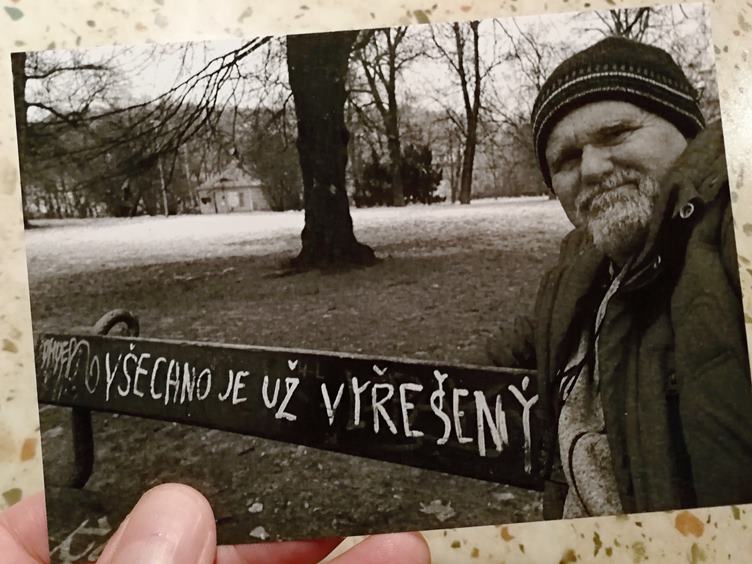 VŠECHNO JE UŽ VYŘEŠENÝ